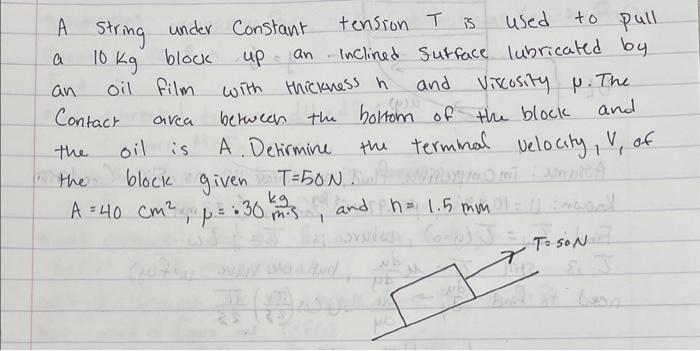 A string under Constant tension T is used to pull
a 10 kg block up an inclined surface lubricated by
an oil film with thickness h and viscosity μ. The
Contact area between the bottom of the block and
the oil is A. Determine the terminal velocity, V, of
the block given T=50N.
A = 40 cm², μ = .30 kg/m·s, and h = 1.5 mm
T=50N